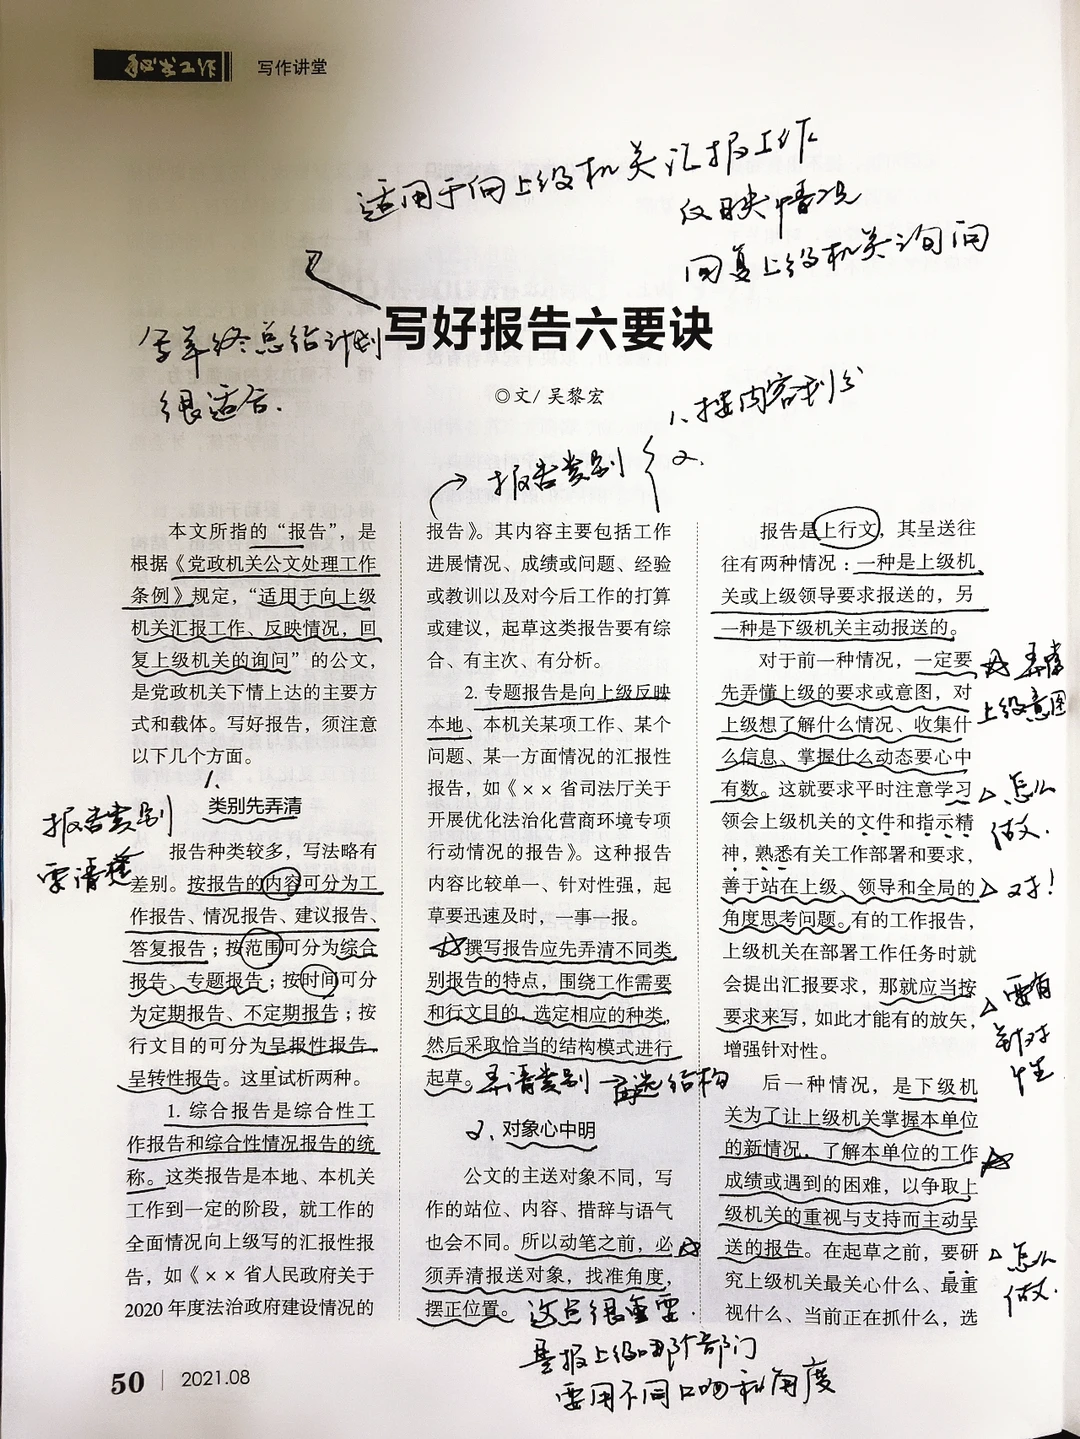 秘书工作 写作讲堂
适用于向上级机关汇报工作
反映情况
回复上级机关询问
写年终总结计划
很适合.
写好报告六要诀
◎文/ 吴黎宏
报告类别
1、按内容划分
2、
本文所指的“报告”，是
根据《党政机关公文处理工作
条例》规定，“适用于向上级
机关汇报工作、反映情况，回
复上级机关的询问”的公文，
是党政机关下情上达的主要方
式和载体。写好报告，须注意
以下几个方面。
1、
类别先弄清
报告类别
要清楚
报告种类较多，写法略有
差别。按报告的内容可分为工
作报告、情况报告、建议报告、
答复报告；按范围可分为综合
报告、专题报告；按时间可分
为定期报告、不定期报告；按
行文目的可分为呈报性报告、
呈转性报告。这里试析两种。
1. 综合报告是综合性工
作报告和综合性情况报告的统
称。这类报告是本地、本机关
工作到一定的阶段，就工作的
全面情况向上级写的汇报性报
告，如《××省人民政府关于
2020 年度法治政府建设情况的
报告》。其内容主要包括工作
进展情况、成绩或问题、经验
或教训以及对今后工作的打算
或建议，起草这类报告要有综
合、有主次、有分析。
2. 专题报告是向上级反映
本地、本机关某项工作、某个
问题、某一方面情况的汇报性
报告，如《××省司法厅关于
开展优化法治化营商环境专项
行动情况的报告》。这种报告
内容比较单一、针对性强，起
草要迅速及时，一事一报。
撰写报告应先弄清不同类
别报告的特点，围绕工作需要
和行文目的，选定相应的种类，
然后采取恰当的结构模式进行
起草。弄清类别→再选结构
2、对象心中明
公文的主送对象不同，写
作的站位、内容、措辞与语气
也会不同。所以动笔之前，必
须弄清报送对象，找准角度，
摆正位置。这点很重要.
呈报上级哪个部门
要用不同口吻和角度
报告是上行文，其呈送往
往有两种情况：一种是上级机
关或上级领导要求报送的，另
一种是下级机关主动报送的。
对于前一种情况，一定要
先弄懂上级的要求或意图，对
上级想了解什么情况、收集什
么信息、掌握什么动态要心中
有数。这就要求平时注意学习
领会上级机关的文件和指示精
神，熟悉有关工作部署和要求，
善于站在上级、领导和全局的
角度思考问题。有的工作报告，
上级机关在部署工作任务时就
会提出汇报要求，那就应当按
要求来写，如此才能有的放矢，
增强针对性。
后一种情况，是下级机
关为了让上级机关掌握本单位
的新情况，了解本单位的工作
成绩或遇到的困难，以争取上
级机关的重视与支持而主动呈
送的报告。在起草之前，要研
究上级机关最关心什么、最重
视什么、当前正在抓什么，选
弄清
上级意图
怎么
做.
对！
要有
针对
性
怎么
做.
50 2021.08